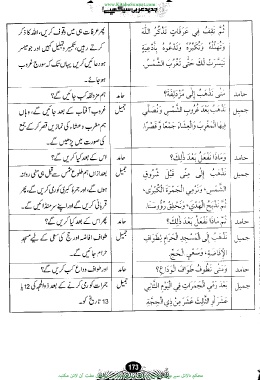 www.KitaboSunnat.com
جدید عربی سیکھیے!
ثُمَّ نَقِفُ فِي عَرَفَاتٍ نَذْكُرُ اللهَ
وَنُهَلِّلُهُ وَنُكَبِّرُهُ وَنَدْعُوهُ بِأَدْعِيَةٍ
تَيَسَّرَتْ لَكَ حَتَّى تَغْرُبَ الشَّمْسُ.
پھر عرفات ہی میں وقوف کریں، اللہ کا ذکر
کرتے رہیں، تکبیر و تہلیل کہیں اور جو میسر
ہو دعائیں کریں یہاں تک کہ سورج غروب
ہو جائے۔
حامد
مَتَى نَذْهَبُ إِلَى مُزْدَلِفَةَ؟
حامد
ہم مزدلفہ کب جائیں گے؟
جميل
نَذْهَبُ بَعْدَ غُرُوبِ الشَّمْسِ وَنُصَلِّي
فِيهَا الْمَغْرِبَ وَالْعِشَاءَ جَمْعًا وَّ قَصْرًا.
جمیل
غروب آفتاب کے بعد جائیں گے، وہاں
ہم مغرب و عشاء کی نمازیں قصر کر کے جمع
کی صورت میں پڑھیں گے۔
حامد
وَمَاذَا نَفْعَلُ بَعْدَ ذَلِكَ؟
حامد
اس کے بعد کیا کریں گے؟
جميل
نَذْهَبُ إِلَى مِنًى قَبْلَ شُرُوقِ
الشَّمْسِ، وَنَرْمِي الْجَمْرَةَ الْكُبْرَى،
ثُمَّ نَذْبَحُ الْهَدْيَ، وَنَحْلِقُ رُؤُوسَنَا.
جمیل
بعد ازاں ہم طلوع شمس سے قبل ہی منٰی روانہ
ہوں گے، اور جمرہ کبریٰ کو رمی کریں گے، پھر
قربانی کریں گے اور اپنے سر منڈائیں گے۔
حامد
ثُمَّ مَاذَا نَفْعَلُ بَعْدَ ذَلِكَ؟
حامد
پھر اس کے بعد کیا کریں گے؟
جميل
نَذْهَبُ إِلَى الْمَسْجِدِ الْحَرَامِ لِطَوَافِ
الْإِفَاضَةِ، وَسَعْيِ الْحَجِّ.
جمیل
طواف افاضہ اور حج کی سعی کے لیے مسجد
حرام جائیں گے۔
حامد
وَمَتَى نَطُوفُ طَوَافَ الْوَدَاعِ؟
حامد
اور طواف وداع کب کریں گے؟
جميل
بَعْدَ رَمْيِ الْجَمَرَاتِ فِي الْيَوْمِ الثَّانِي
عَشَرَ أَوِ الثَّالِثَ عَشَرَ مِنْ ذِي الْحِجَّةِ
جمیل
جمرات کو رمی کرنے کے بعد ذوالحجہ کی 12 یا
13 تاریخ کو۔
173